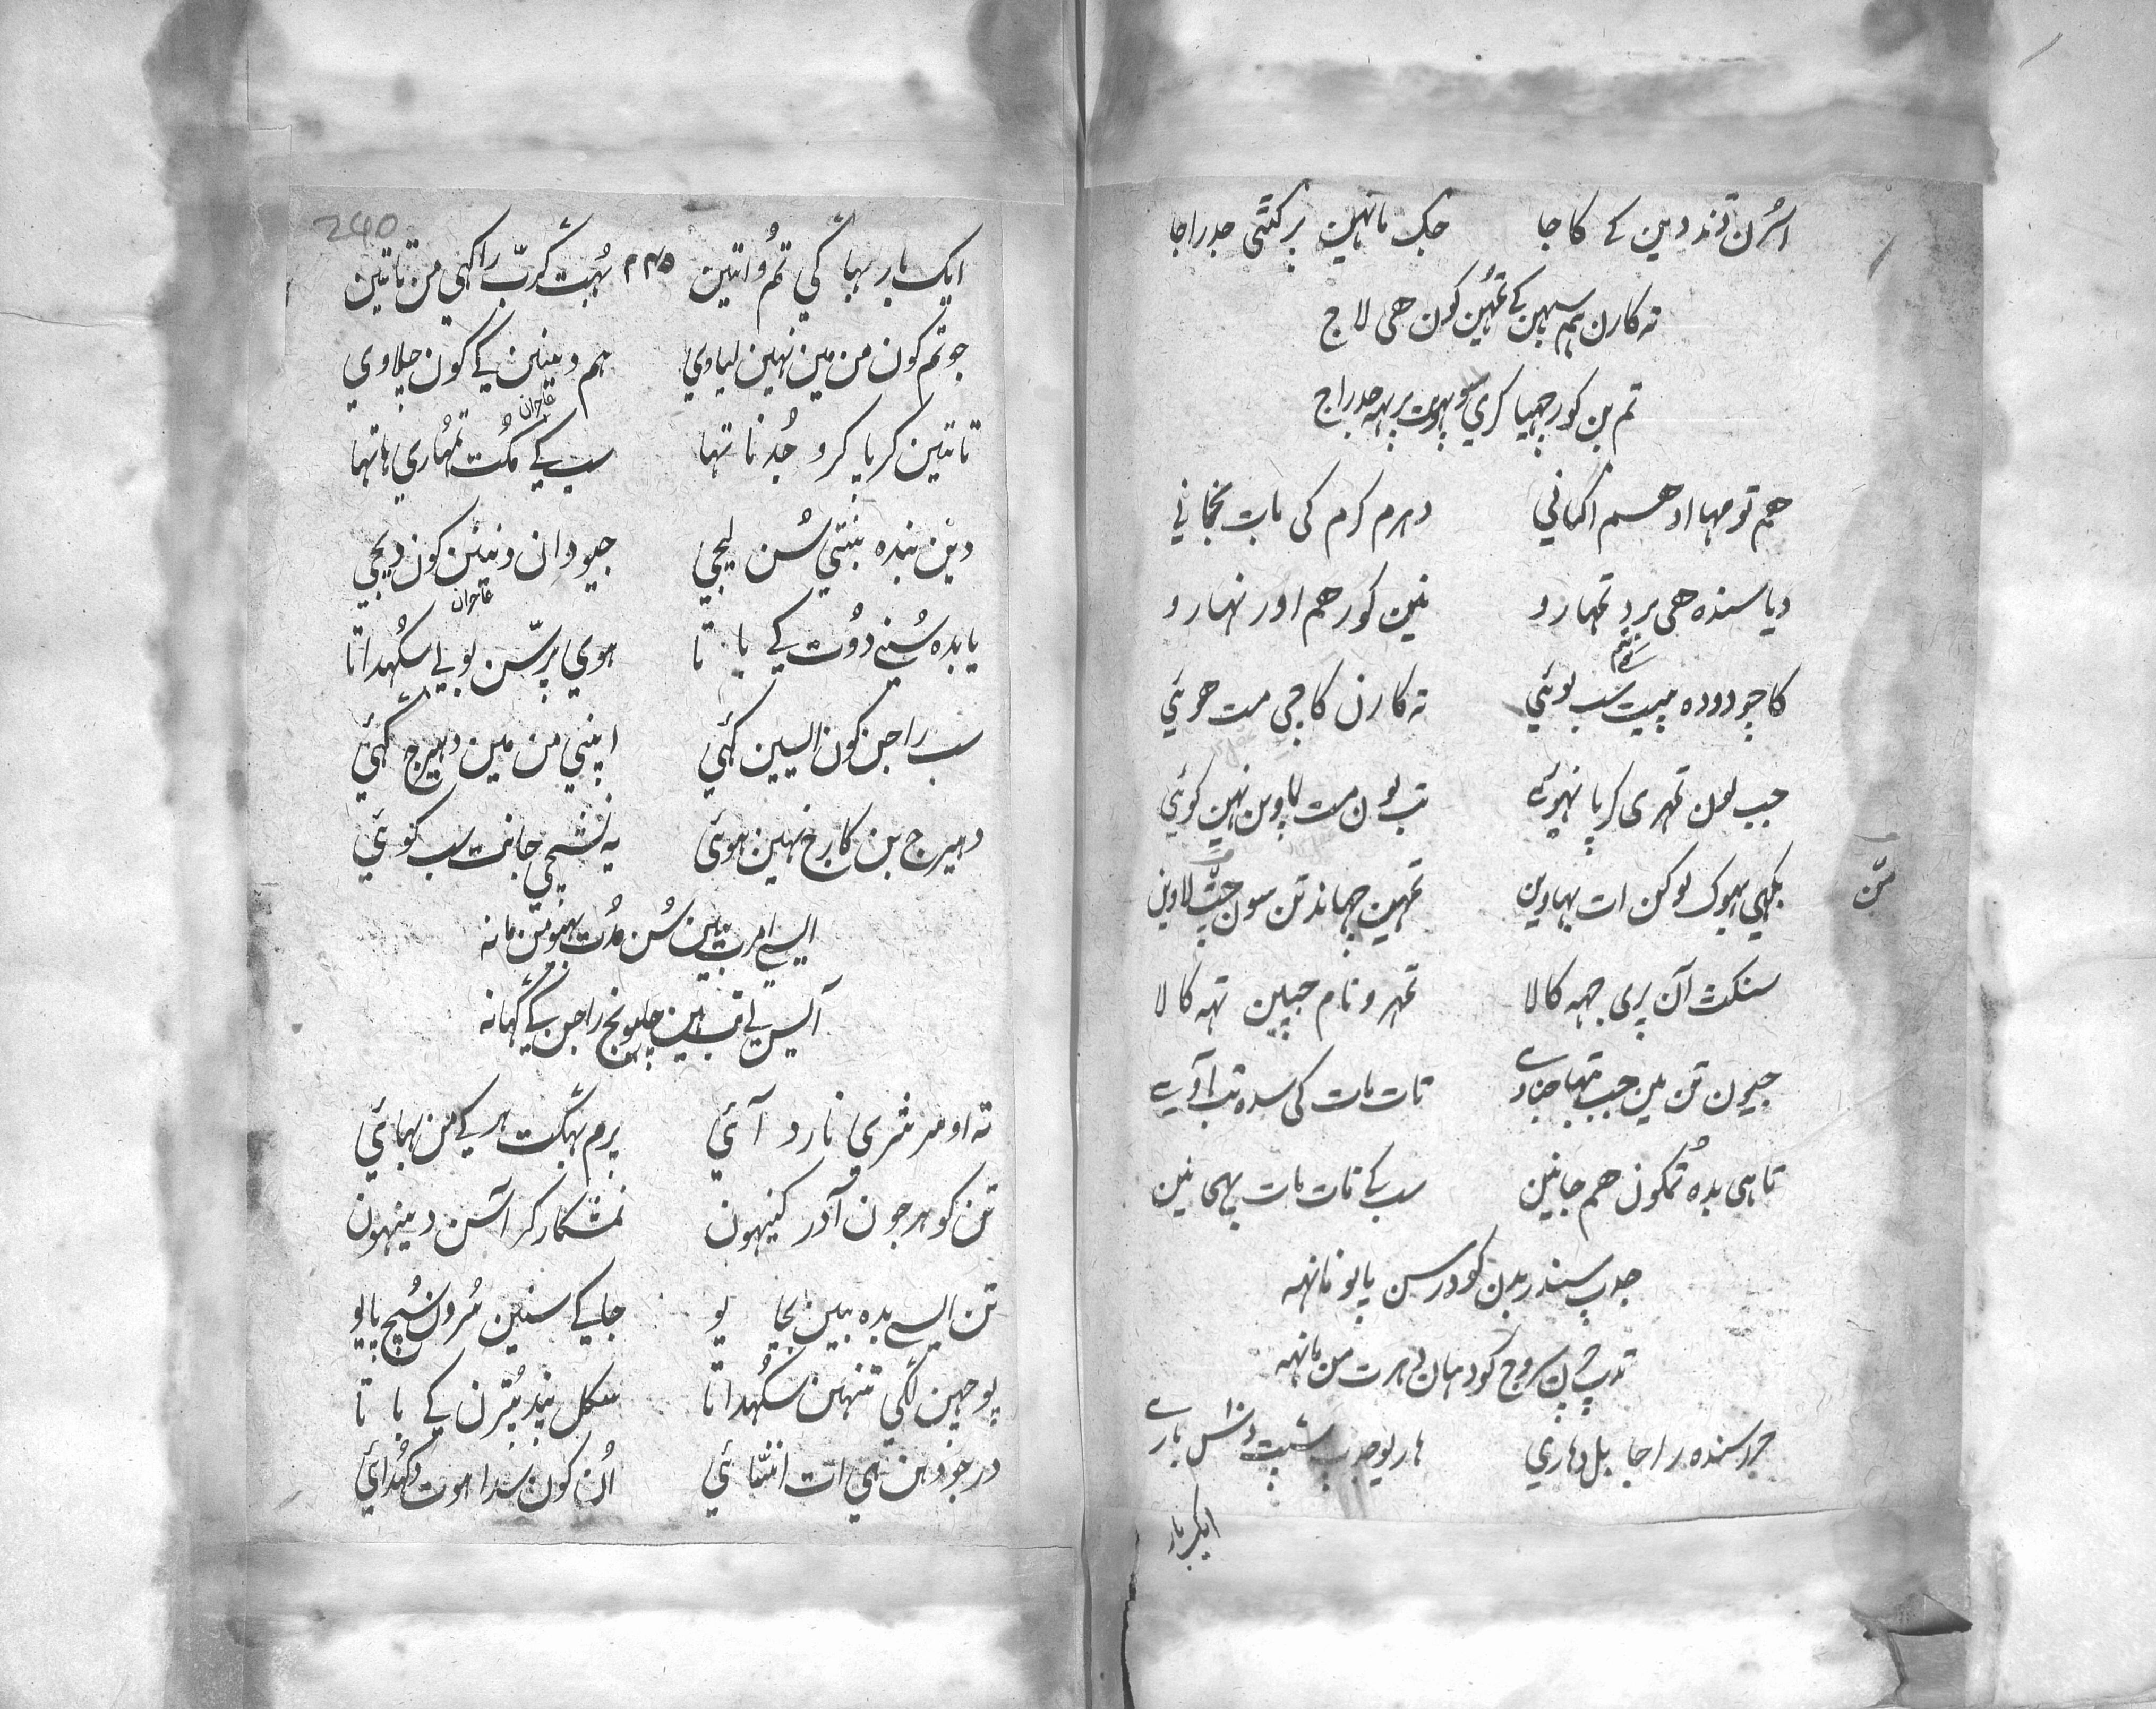 اسُرن دند دین کے کاجا جگ مانہین پرگٹی جدراجا
تہ کارن ہم سبہن کے تمُہین کون ھی لاج
تم بن کو رچھیا کری سو پہوت پرہہ جدراج
ھم تو مہا ادھم اگیانی دہرم کرم کی بات نجانی
دیا سندہ ھی برد تمہارو نین کور ھم اور نہارو
کاچو دودہ پیت سب لوئي تہ کارن کاچی مت ھوئي
جب لون تمہری کرپا نہوئي تب لون مت پاوین نہین کوئي
بکہی بہوک لوکن ات بہاوین تمہین چھاند تن سون چت لاوین
من
سنکٹ آن پری جہہ کالا تمہرو نام جپین تہہ کالا
جیون تن مین جب بتہا جناوے تات مات کی سدہ تب آوے
تاہی بدہ تمُکون ھم جانین سب کے تات مات پہچانین
جدپ سندر بدن کو درسن پایو نانہہ
تدپ چرن سروج کو دہان لے ہرت من مانہہ
جراسندہ راجا بل دہاری ہاریو جدپ سپت دس بارے
ایک بار
240
ایک بار بہاگی تمُ واتین ۲۴۵ بہُت گربّ راکہی من تاتین
جو تم کون من مین نہین لیاوي ہم دینین کے کون چلاوي
عاجزان
تاتین کرپا کرو جُدناتہا سب کے مکُت تمہُاري ہاتہا
دین بندہ بنتي سُن لیجي جیودان دینین کون دیجي
عاجزان
یا بدہ سُنے دوُت کے باتا ھوي پرسّن بولے سکُہداتا
سب راجن کون ایسین کہئي اپني من مین دہیرج گہئي
دہیرج بن کارج نہین ہوئي یہ نشچي جانت سب کوئي
ایسے امرت بین سُن مدُت بہیو من مانہ
آیس لے تب ہین چلیو نج راجن کے گہانہ
تہ اوسر شري نارد آئي پرم بہگت ہر کے من بہائي
تن کو ہر جون آدر کینہون نمشکار کر آسن دینہون
تن ایسے بدہ بین بجایو جاکے سنین سُرون سُچ پایو
پوچہین لگي تنہین سکُہداتا سکل پند پتُرن کے باتا
درجودہن ہي ات انتّائي اُن کون سدا ہوت دکُہدائي